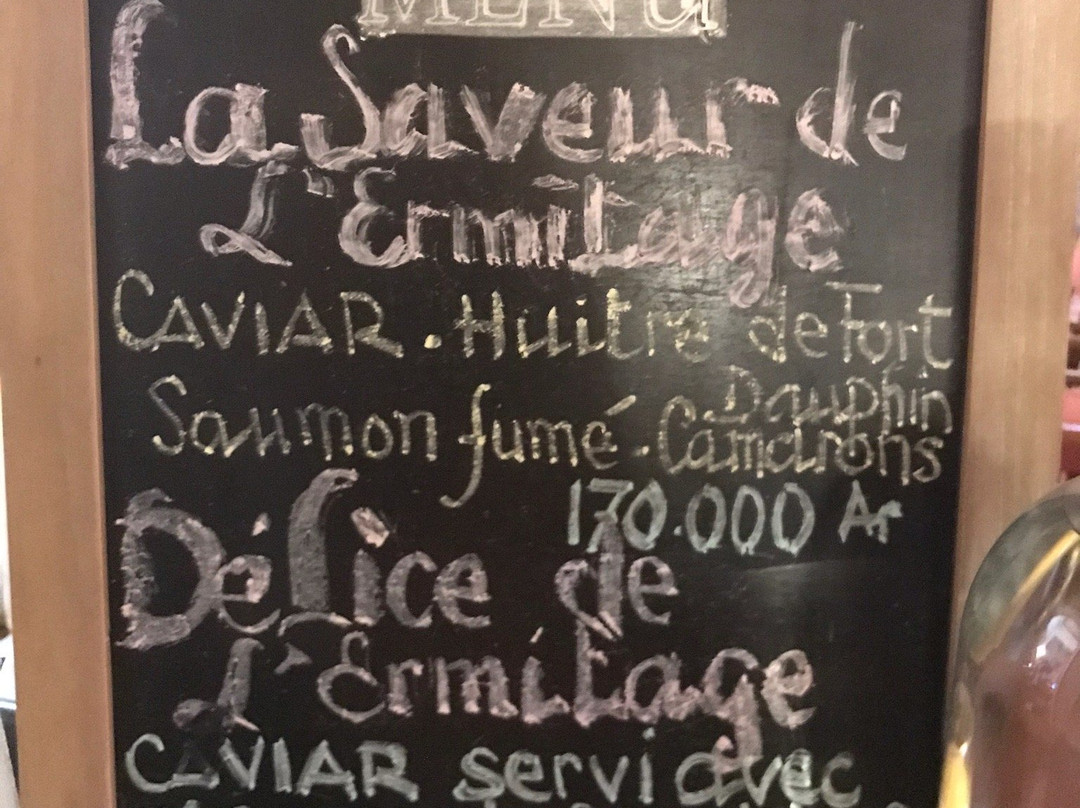 MENU
La Saveur de
L'Ermitage
CAVIAR . Huitre de Fort
Dauphin
Saumon fumé - Camarons
170.000 Ar
Délice de
L'Ermitage
CAVIAR servi avec